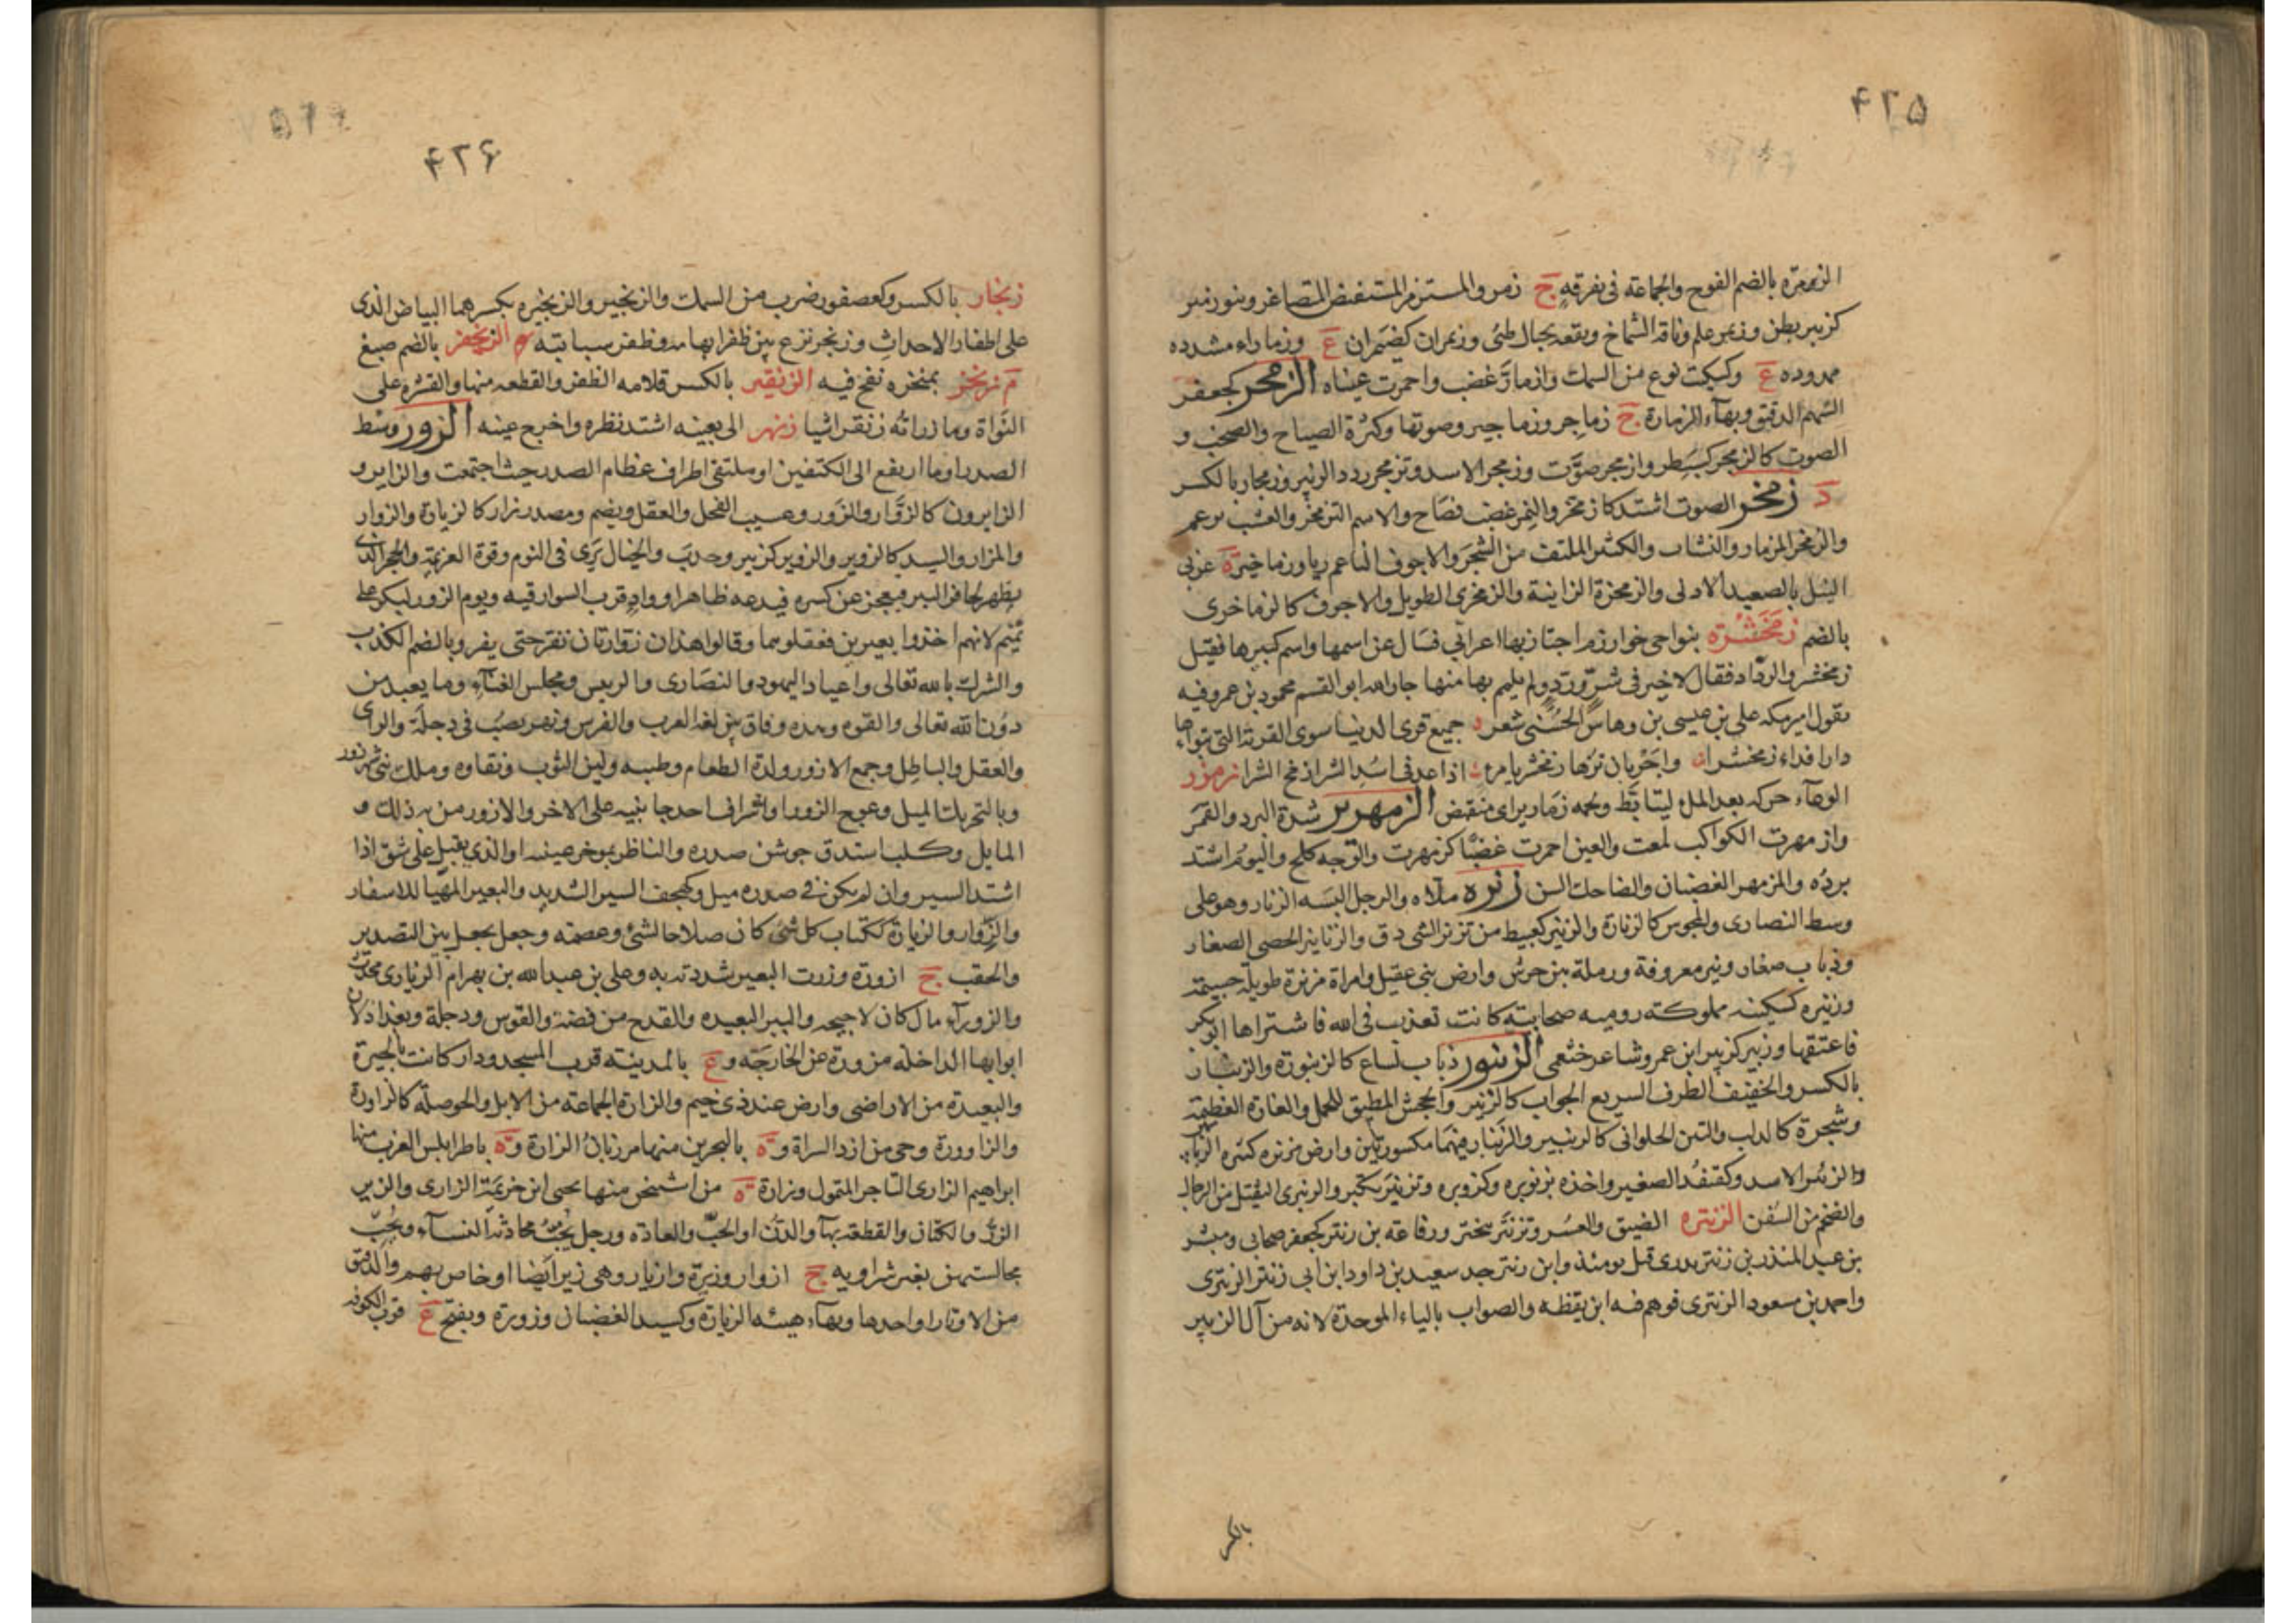 ۴۲۵
الزمرة بالضم الفوج والجماعة فى تفرقه ج زمر والمستزمر المنقبض المتصاغر وبنو زمير
كزبير بطن وزيمر علم وناقة الشماخ وبقعة بجبال طئ وزيمران كضيمران ع وزماراء مشدده
ممدوده ع وكسكيت نوع من السمك وازمأرّ غضب واحمرت عيناه الزمجر كجعفر
السهم الدقيق وبهآء الزمارة ج زماجر وزماجير وصوتها وكثرة الصياح والصخب و
الصوت كالزمجر كسبطر وازمجر صوّت وزمجر الاسد وتزمجر ردد الزئير وزمجار بالكسر
د زمخر الصوت اشتد كازمخر والنمر غضب فصاح والاسم التزمخر والعشب برعم
والزمخر المزمار والنشاب والكثير الملتف من الشجر والاجوف الناعم ريا وزماخير ة غربى
النيل بالصعيد الادنى والزمخرة الزانية والزمخرى الطويل والاجوف كالزماخرى
بالضم زمخشر ة بنواحى خوارزم اجتاز بها اعرابى فسال عن اسمها واسم كبيرها فقيل
زمخشر والردّاد فقال لا خير فى شرّ وردّ ولم يلمم بها منها جار الله ابو القسم محمود بن عمر وفيه
يقول امير مكه على بن عيسى بن وهاس الحسنى شعر جميع قرى الدنيا سوى القرية التى تبواها
دارا فداء زمخشرا واحر بان تزها زمخشر بامرء اذا عد فى اسد الشرا زمخ الشرا زمزر
الوعاء حركه بعد الملء ليتابّط ولحمه زماريراى منقبض الزمهرير شدة البرد والقمر
وازمهرت الكواكب لمعت والعين احمرت غضبا كزمهرت والوجه كلح واليوم اشتد
برده والمزمهر الغضبان والضاحك السن زنره ملاه والرجل البسه الزنار وهو على
وسط النصارى والمجوس كالزنارة والزنير كقبيط من تزنر الشى دق والزنانير الحصى الصغار
وذباب صغار وبئر معروفة ورملة بين جرش وارض بنى عقيل وامراة مزنرة طويلة جسيمة
وزنيرة كسكينة مملوكة روميه صحابية كانت تعذب فى الله فاشتراها ابو بكر
فاعتقها وزنير كزبير ابن عمرو شاعر خثعمى الزنبور ذباب لساع كالزنبورة والزنبار
بالكسر والخفيف الظرف السريع الجواب كالزنبر والجحش المطيق للحمل والفارة العظيمة
وشجرة كالدلب والتين الحلوانى كالزنبير والزنبار فيهما مكسورتين وارض مزنبره كثيره الزنابير
والزنبر الاسد وكقنفذ الصغير واخذه بزنوبره وكزوبره وتزنبر تكبر والزنبرى الثقيل من الرجال
والضخم من السفن الزنترة الضيق والعسر وتزنتر تبختر ورفاعة بن زنتر كجعفر صحابى ومبشر
بن عبد المنذر بن زنتر بدرى قتل يومئذ وابن زنتر جد سعيد بن داود ابن ابى زنتر الزنترى
واحمد بن مسعود الزنترى فوهم فيه ابن نقطه والصواب بالباء الموحدة لانه من آل الزبير
بالكسر
۴۲۶
زنجار بالكسر وكعصفور ضرب من السمك والزنجير والزنجيره بكسرهما البياض الذى
على اظفار الاحداث وزنجر نزع بين ظفر ابهامه وظفر سبابته الزنجفر بالضم صبغ
م زنخر بمنخره نفخ فيه الزنقير بالكسر قلامه الظفر والقطعه منها والقشرة على
النواة وما زراته زنقرا شيا زنهر الى بعينه اشتد نظره واخرج عينه الزور وسط
الصدر او ما ارتفع الى الكتفين او ملتقى اطراف عظام الصدر حيث اجتمعت والزاير و
الزايرون كالزوّار والزور وعسيب النخل والعقل ويضم ومصدر زار كالزيارة والزوار
والمزار والسيد كالزوير والزوير كزبير وخدب والخيال يرى فى النوم وقوة العزيمة والحجر الذى
يظهر لحافر البير فيعجز عن كسره فيدعه ظاهرا وواد قرب السوارقيه ويوم الزور لبكر على
تميم لانهم اخذوا بعيرين فعقلوهما وقالوا هذان زوارانا لن نفر حتى يفر وبالضم الكذب
والشرك بالله تعالى واعياد اليهود والنصارى والرييس ومجلس الغنآء وما يعبد من
دون الله تعالى والقوه وهذه وفاق بين لغة العرب والفرس ونهر يصب فى دجلة والراى
والعقل والباطل وجمع الازور ولذة الطعام وطيبه ولين الثوب ونقاوه وملك بنى شهرزور
وبالتحريك الميل وعوج الزور او اشراف احد جانبيه على الاخر والازور من به ذلك و
المايل وكلب استدق جوشن صدره والناظر بموخر عينيه او الذى يقبل على شق اذا
اشتد السير وان لم يكن فى صدره ميل وكهجف السير الشديد والبعير المهيا للاسفار
والزوار والزيارة ككتاب كل شئ كان صلاحا لشئ وعصمة وحبل يجعل بين التصدير
والحقب ج ازورة وزرت البعير شددته به وعلى بن عبد الله بن بهرام الزيارى محدث
والزورآء مال كان لاحيحة والبير البعيده والقدح من فضة والقوس ودجلة وبغداد لان
ابوابها الداخلة مزورة عن الخارجة وع بالمدينة قرب المسجد ودار كانت بالحيرة
والبعيدة من الاراضى وارض عند ذى خيم والزارة الجماعة من الابل والحوصلة كالزاورة
والزاوورة وحى من ازد السراة وة بالبحرين منها مرزبان الزارة وة باطرابلس الغرب منها
ابراهيم الزارى التاجر المتمول وزارة ة من اشتيخن منها يحيى ابن خزيمة الزارى والزير
الزرّ والكتان والقطعة بهآ والدن او الحبّ والعادة ورجل يحب محادثة النسآء ويحب
مجالستهن بغير شر او به ج ازوار وزيرة وازيار وهى زير ايضا او خاص بهم والدقيق
من الاوتار او احدها وبهآء هيئة الزيارة وكسيد الغضبان وزورة ويفتح ع قرب الكوفة